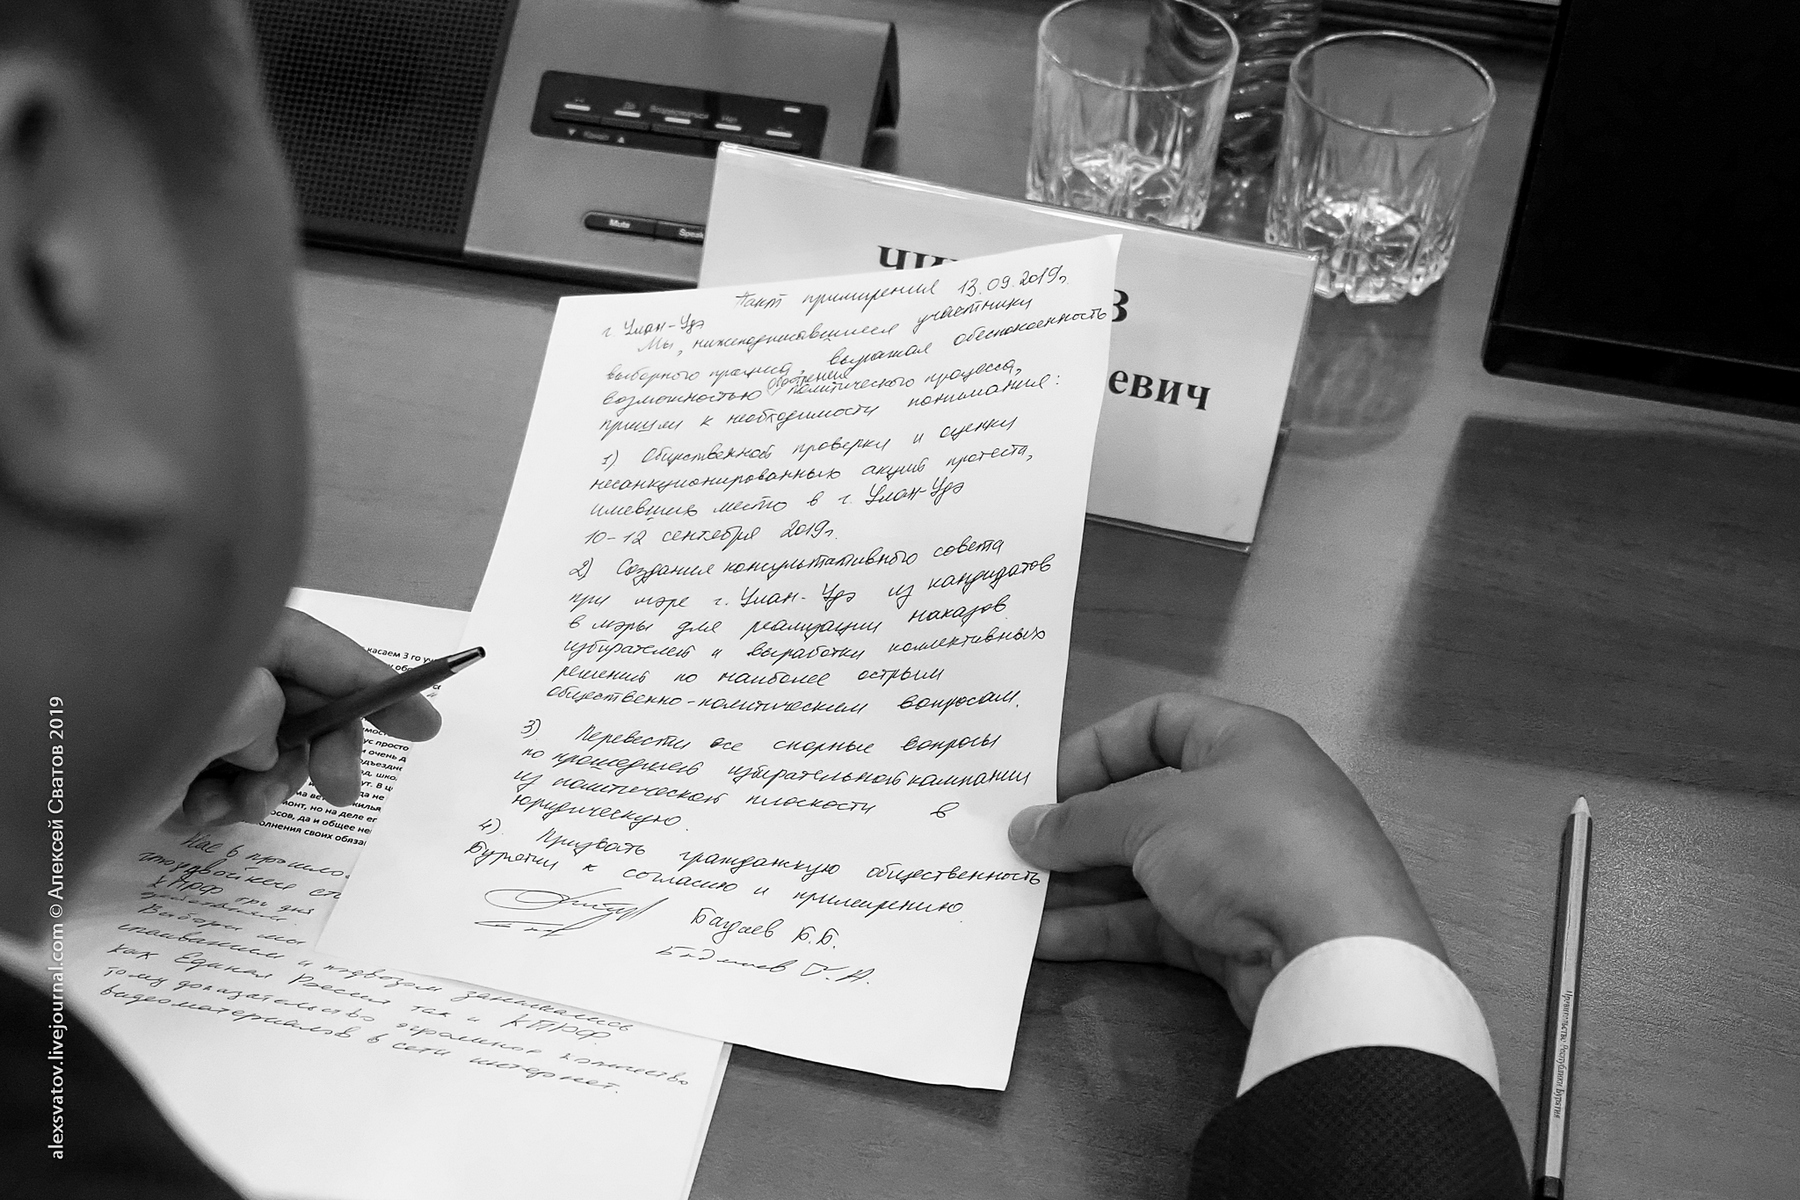 Mute
ЧИ
В
евич
Пакт примирения 13.09.2019г.
г. Улан-Удэ
Мы, нижеподписавшиеся участники
выборного процесса, выражая обеспокоенность
возможностью обострения политического процесса,
пришли к необходимости понимания:
1) Общественной проверки и оценки
несанкционированных акций протеста,
имевших место в г. Улан-Удэ
10-12 сентября 2019г.
2) Создания консультативного совета
при мэре г. Улан-Удэ из кандидатов
в мэры для реализации наказов
избирателей и выработки коллективных
решений по наиболее острым
общественно-политическим вопросам.
3) Перевести все спорные вопросы
по прошедшей избирательной кампании
из политической плоскости в
юридическую.
4) Призвать гражданскую общественность
Бурятии к согласию и примирению
Бадаев Б.Б.
касаем 3 го
ус просто
и очень д
но на деле ег
да и общее не
олнения своих обяза
Нас в прошло
КПРФ при
Выборы мы
спаиванием и подвозом занимались
как Единая Россия так и КПРФ
тому доказательство огромное количество
видеоматериалов в сети интернет.
Правительство Республики Бурятия
alexsvatov.livejournal.com © Алексей Сватов 2019